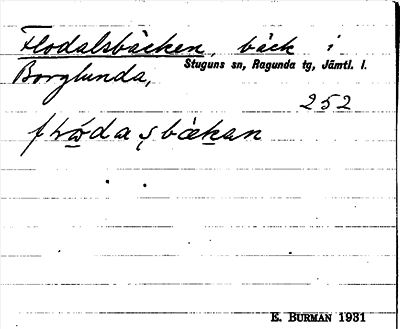 Flodalsbäcken, bäck i
Stuguns sn, Ragunda tg, Jämtl. l.
Borglunda,
252
E. BURMAN 1931